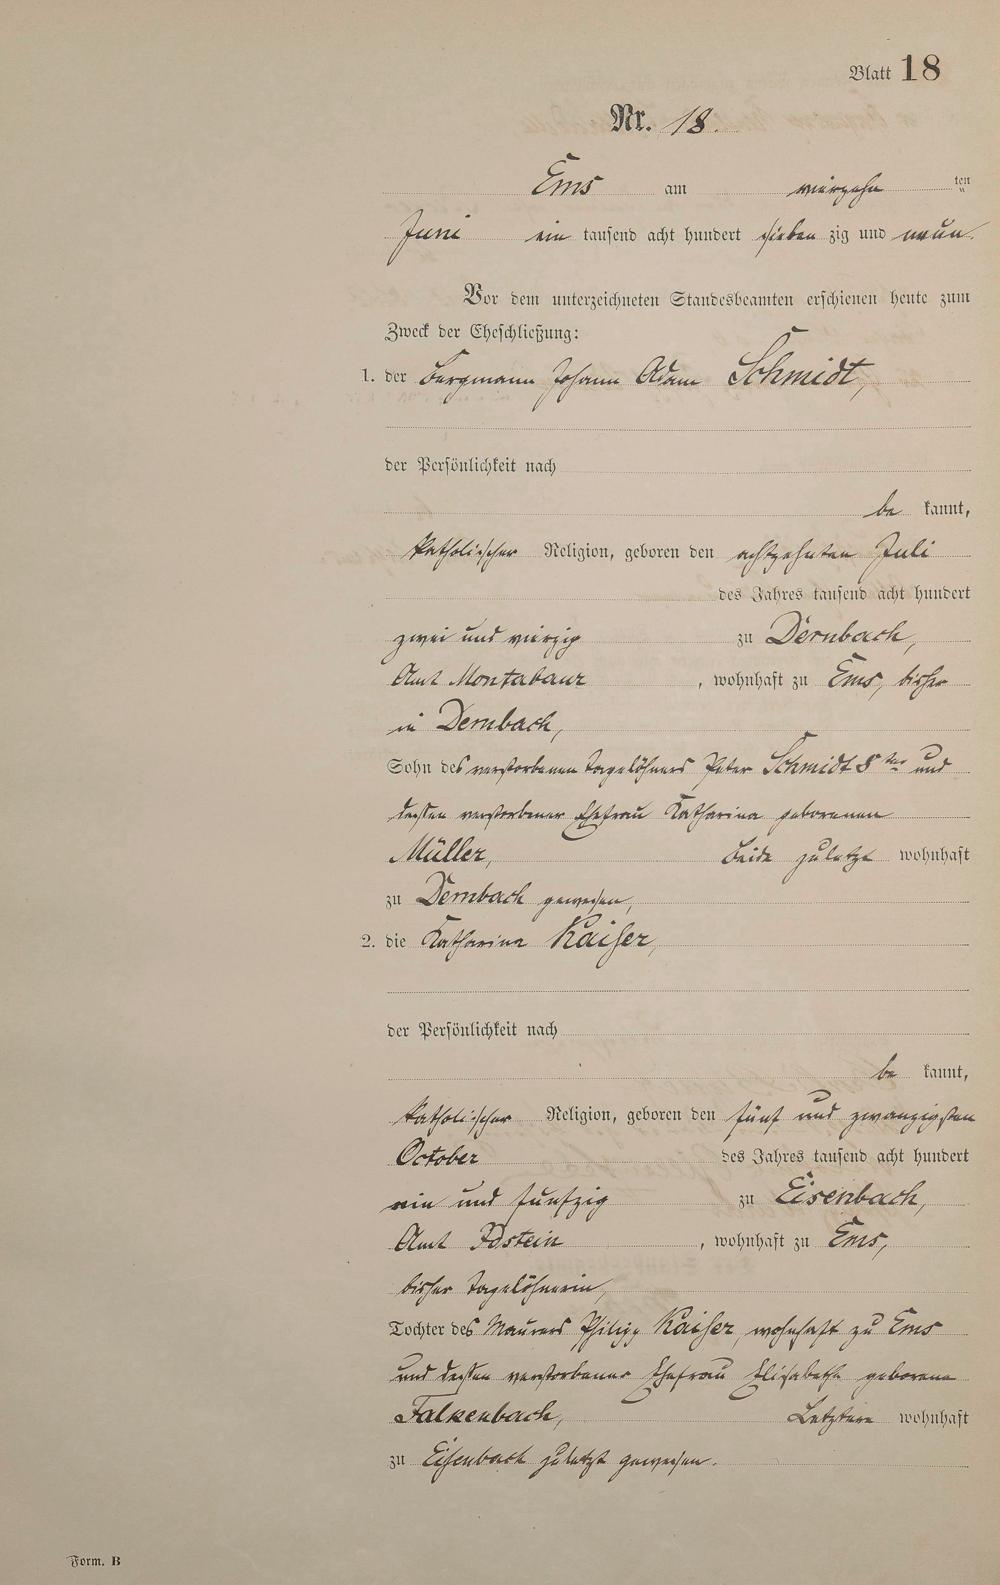 Blatt 18
Nr. 18.
Ems am vierzehn ten
Juni ein tausend acht hundert sieben zig und neun.
Vor dem unterzeichneten Standesbeamten erschienen heute zum
Zweck der Eheschließung:
1. der Bergmann Johann Adam Schmidt,
der Persönlichkeit nach
be kannt,
katholischer Religion, geboren den achtzehnten Juli
des Jahres tausend acht hundert
zwei und vierzig zu Dernbach,
Amt Montabaur , wohnhaft zu Ems, bisher
in Dernbach,
Sohn des verstorbenen Tagelöhners Peter Schmidt 8ter und
dessen verstorbener Ehefrau Katharina geborenen
Müller, Beide zuletzt wohnhaft
zu Dernbach gewesen,
2. die Katharina Kaiser,
der Persönlichkeit nach
be kannt,
katholischer Religion, geboren den fünf und zwanzigsten
October des Jahres tausend acht hundert
ein und fünfzig zu Eisenbach,
Amt Idstein , wohnhaft zu Ems,
bisher Tagelöhnerin,
Tochter des Maurers Philipp Kaiser, wohnhaft zu Ems
und dessen verstorbener Ehefrau Elisabetha geborene
Falkenbach, Letztere wohnhaft
zu Eisenbach zuletzt gewesen.
Form. B